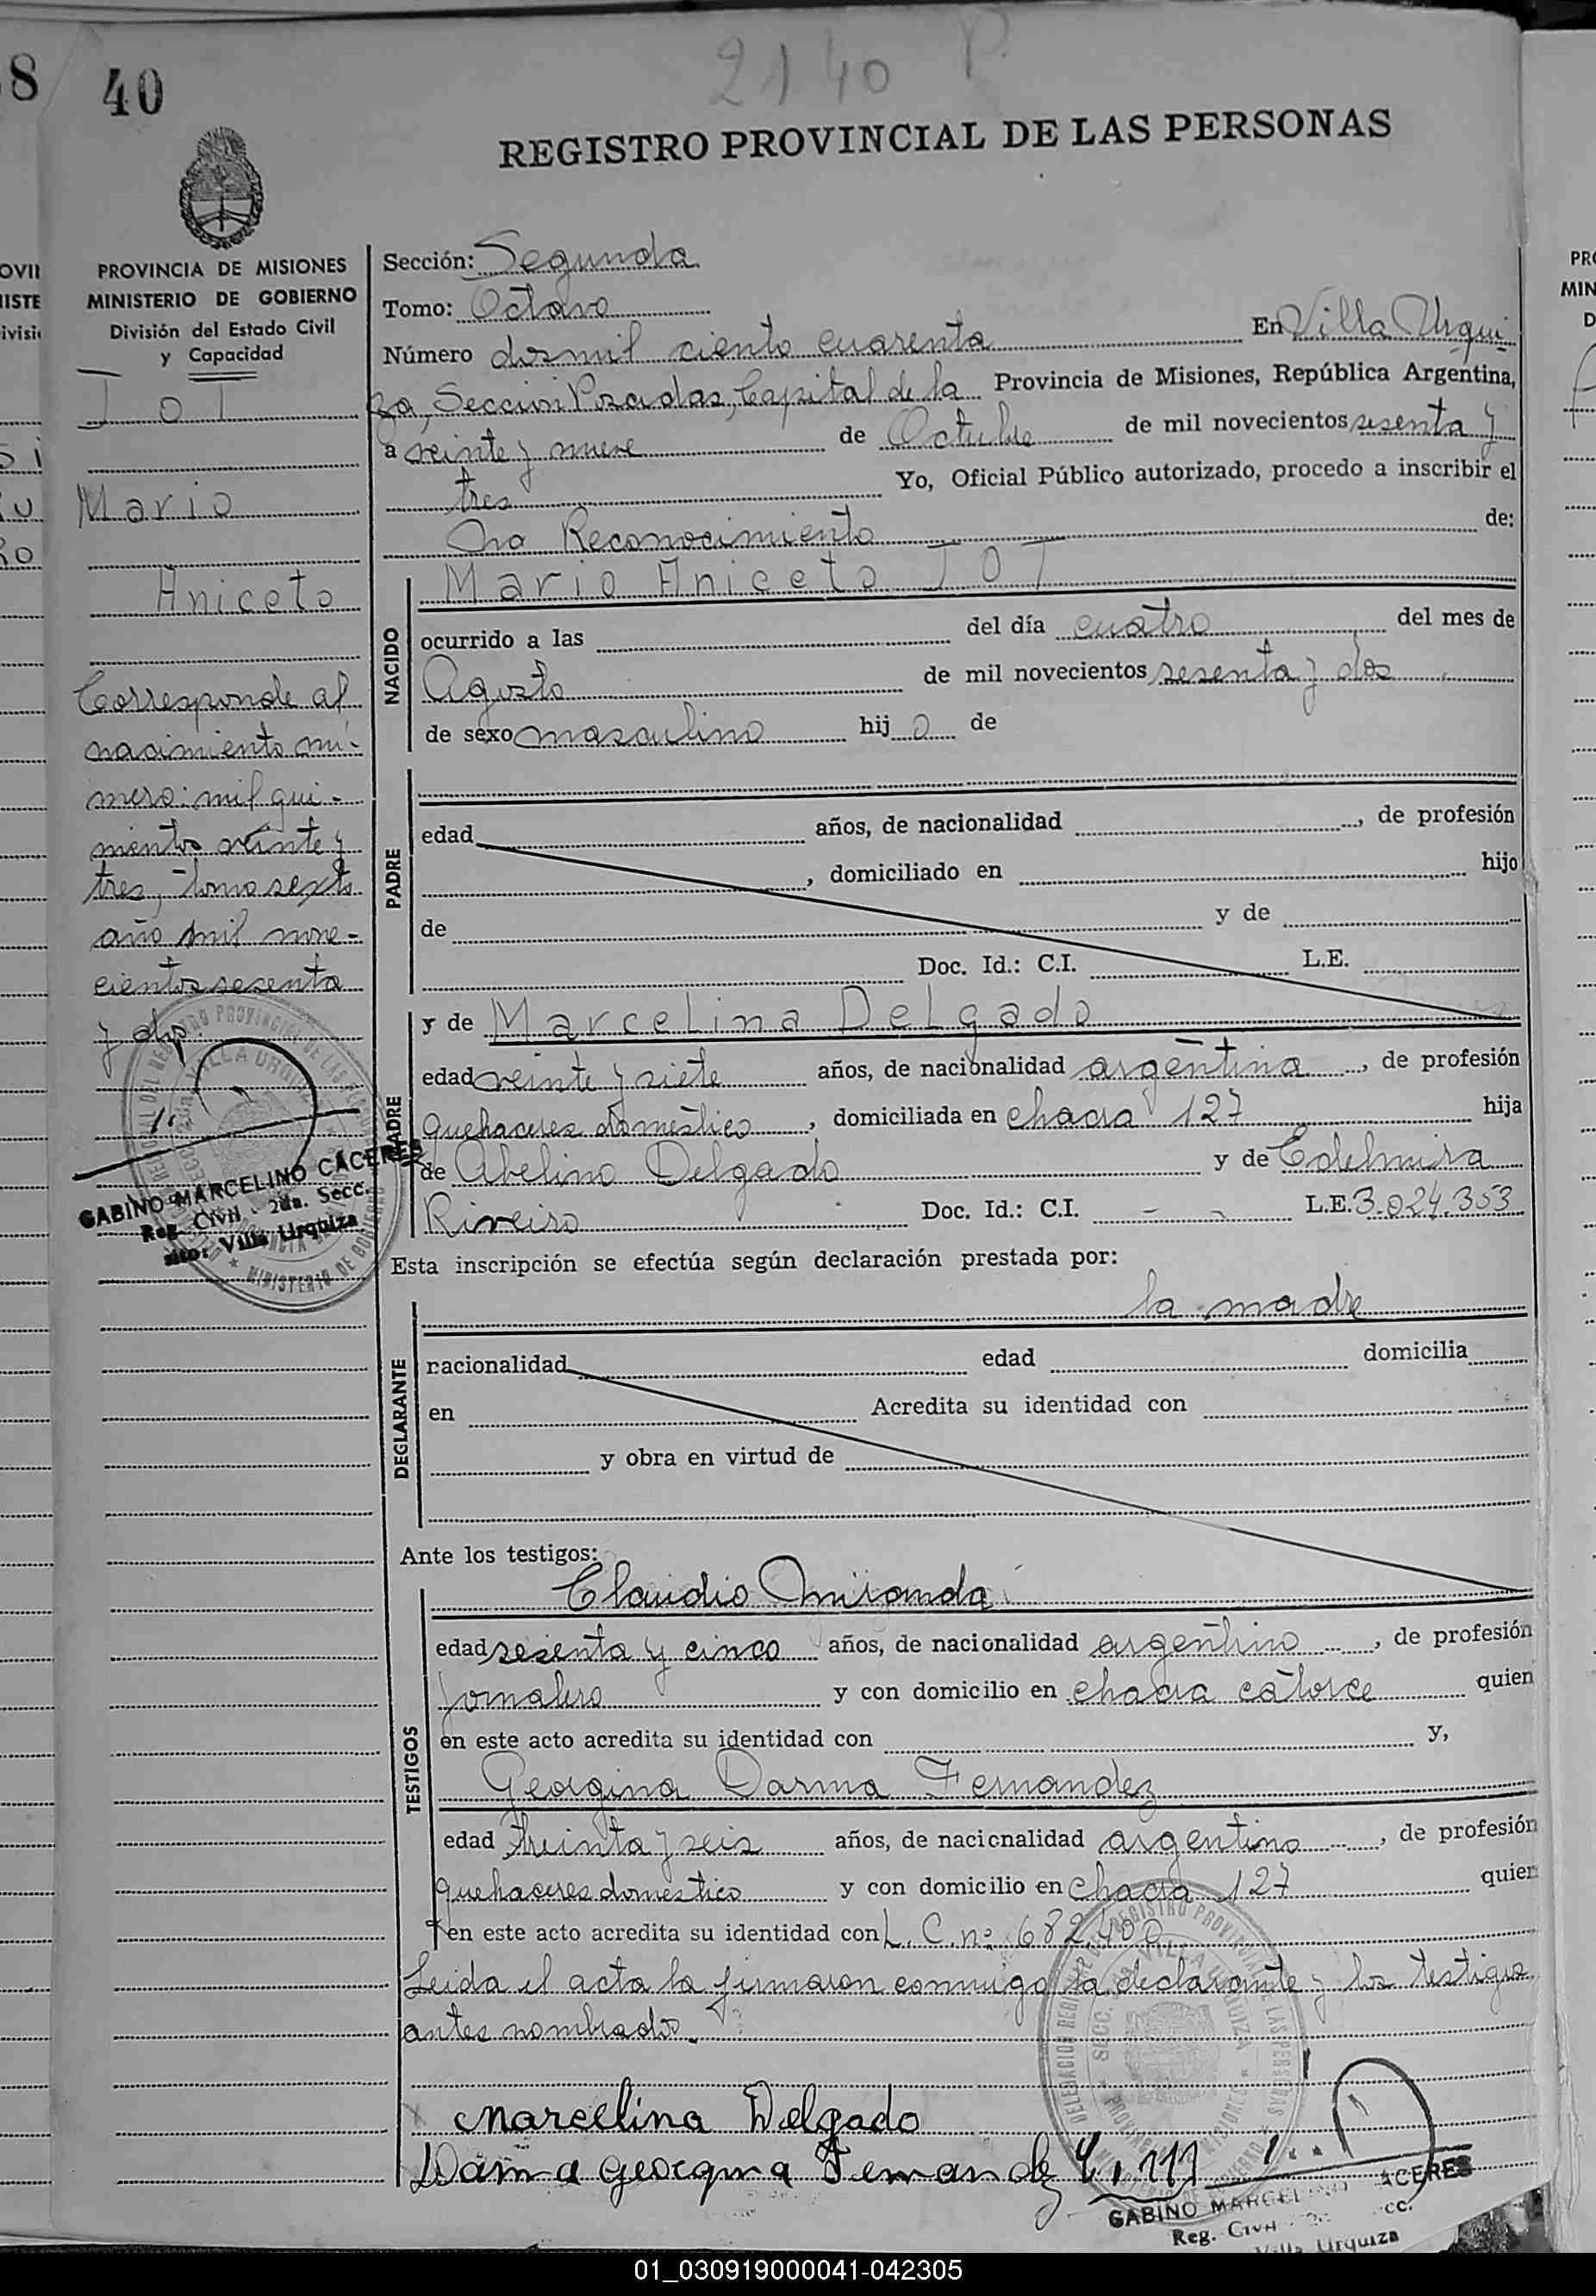 8
40
2140 P.
REGISTRO PROVINCIAL DE LAS PERSONAS
PROVINCIA DE MISIONES
MINISTERIO DE GOBIERNO
División del Estado Civil
y Capacidad
JOT
Mario
Aniceto
Corresponde al
nacimiento nú-
mero: mil qui-
nientos veinte y
tres, Tomo sexto
año mil nove-
cientos sesenta
y dos.
GABINO MARCELINO CACERES
Reg. Civil - 2da. Secc.
Villa Urquiza
Sección: Segunda
Tomo: Octavo
Número dosmil ciento cuarenta En Villa Urqui
za, Sección Posadas, Capital de la Provincia de Misiones, República Argentina,
a veinte y nueve de Octubre de mil novecientos sesenta y
tres Yo, Oficial Público autorizado, procedo a inscribir el
Reconocimiento de:
NACIDO
Mario Aniceto JOT
ocurrido a las del día cuatro del mes de
Agosto de mil novecientos sesenta y dos
de sexo masculino hijo de
PADRE
edad años, de nacionalidad , de profesión
, domiciliado en hijo
de y de
Doc. Id.: C.I. L.E.
MADRE
y de Marcelina Delgado
edad veinte y siete años, de nacionalidad argentina , de profesión
quehaceres domestico , domiciliada en chacra 127 hija
de Abelino Delgado y de Edelmira
Riveiro Doc. Id.: C.I. - - L.E. 3.024.353
Esta inscripción se efectúa según declaración prestada por:
la madre
DECLARANTE
nacionalidad edad domicilia
en Acredita su identidad con
y obra en virtud de
Ante los testigos:
TESTIGOS
Claudio Miranda
edad sesenta y cinco años, de nacionalidad argentino , de profesión
jornalero y con domicilio en chacra catorce quien
en este acto acredita su identidad con y,
Georgina Darma Fernandez
edad treinta y seis años, de nacionalidad argentina , de profesión
quehaceres domestico y con domicilio en chacra 127 quien
en este acto acredita su identidad con L. C. nº 682.400
Leida el acta la firmaron conmigo la declarante y los testigos
antes nombrados.
Marcelina Delgado
Darma Georgina Fernandez
GABINO MARCELINO CACERES
Reg. Civil
Villa Urquiza
01_030919000041-042305